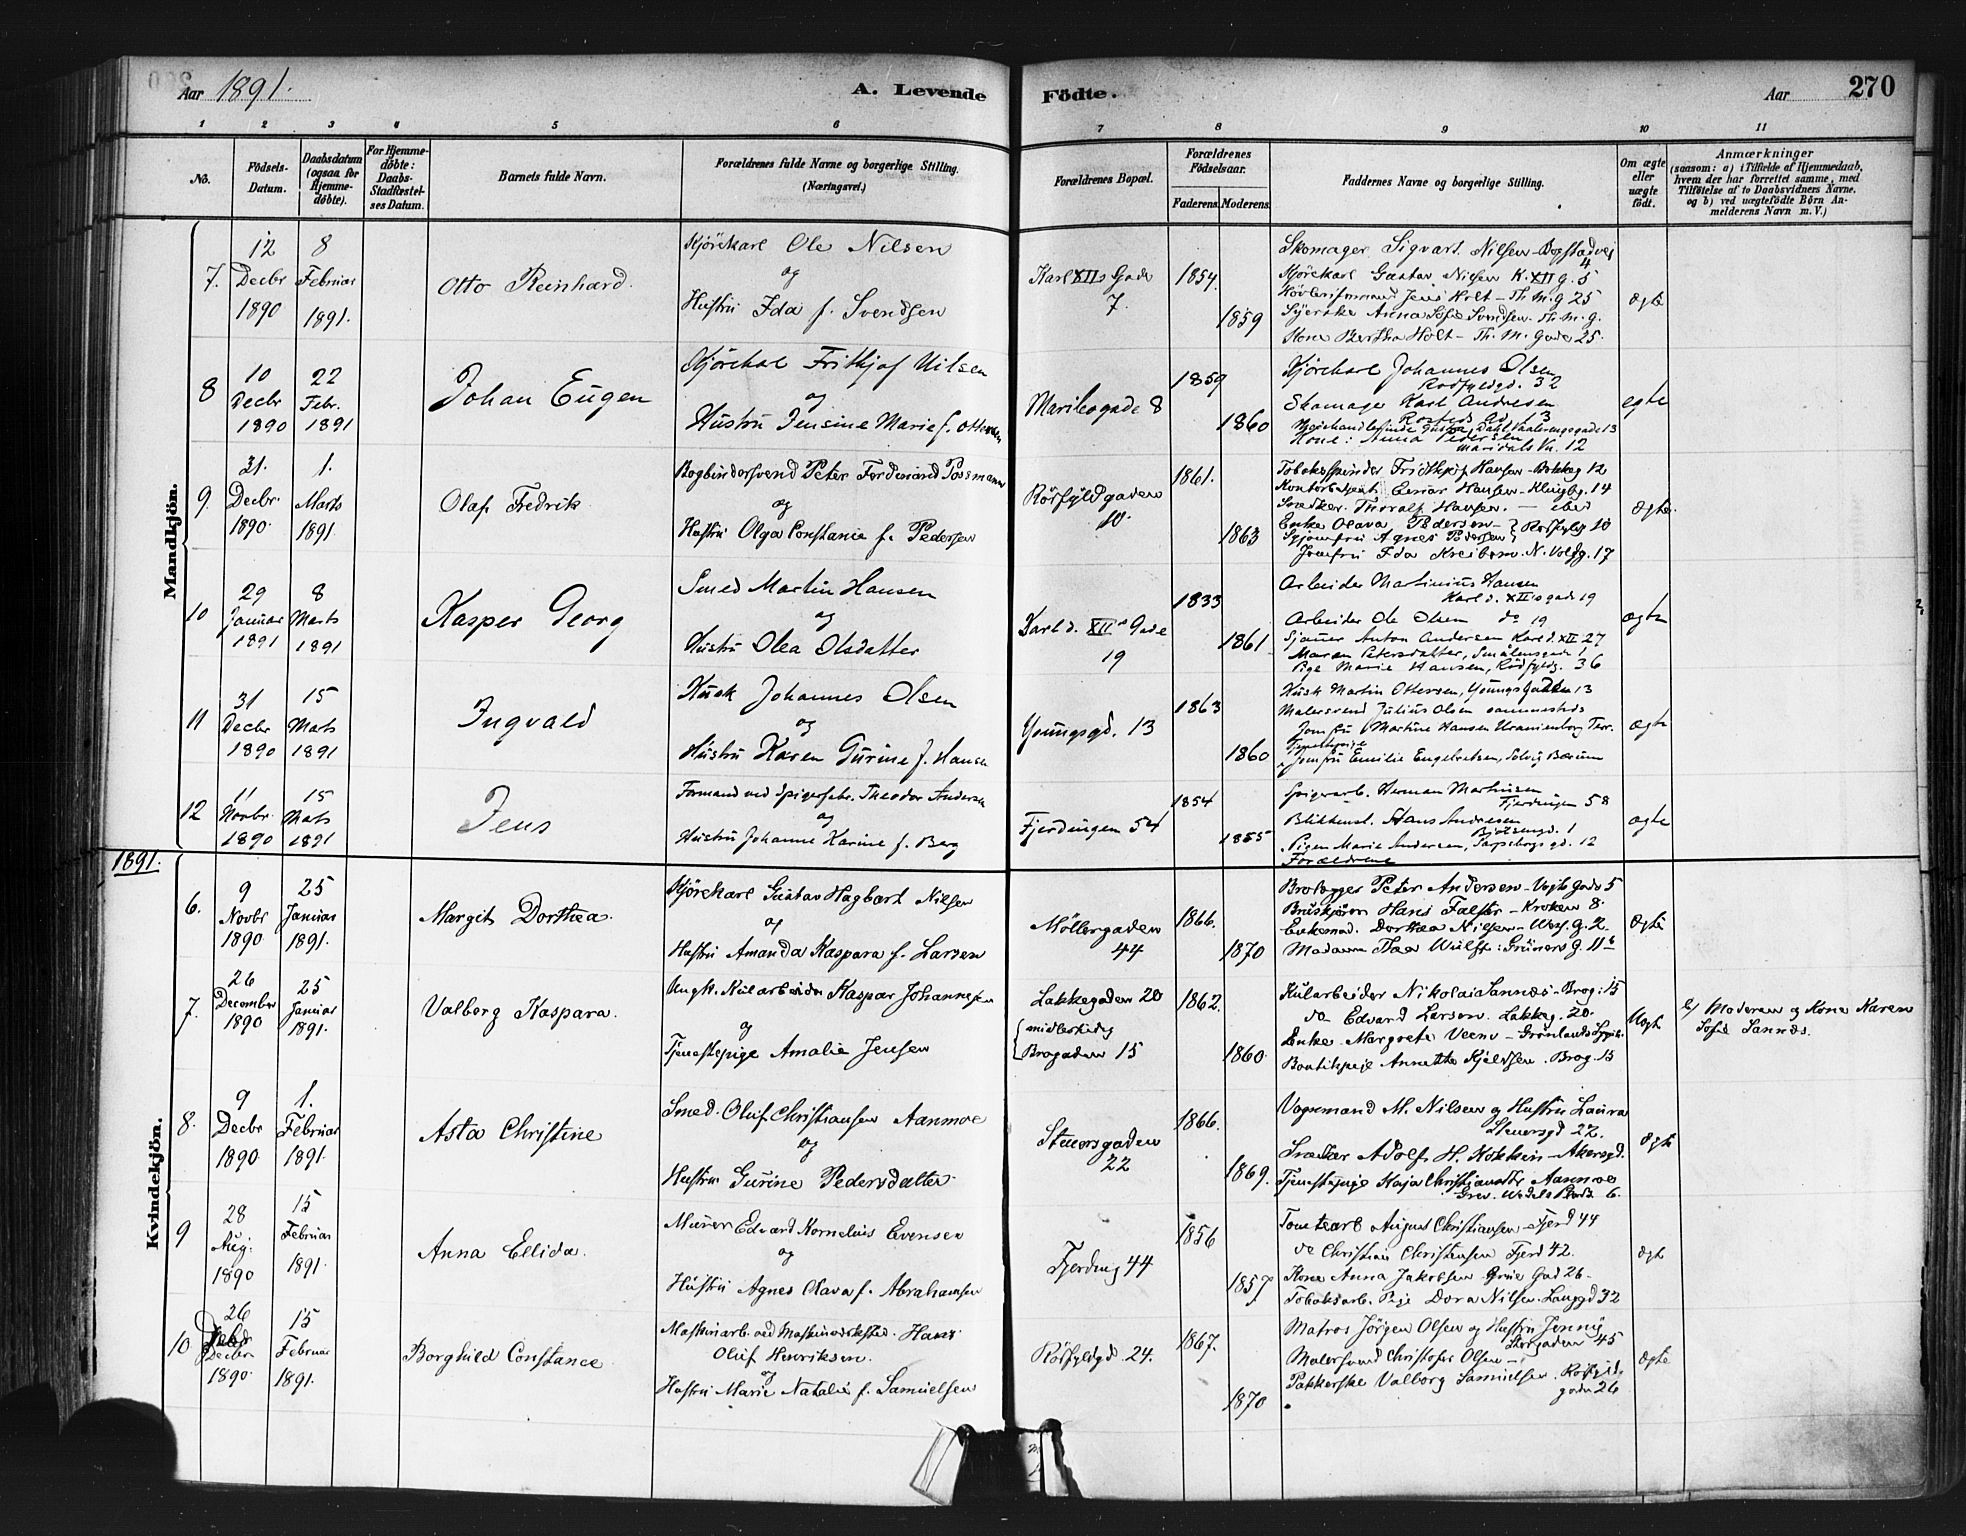 Aar 1891.
A. Levende Födte.
Aar
270
1 2 3 4 5 6 7 8 9 10 11
No.
Födsels-Datum.
Daabsdatum (ogsaa for Hjemmedöbte).
For Hjemmedöbte: Daabs-Stadfæstelses Datum.
Barnets fulde Navn.
Forældrenes fulde Navne og borgerlige Stilling. (Næringsvei.)
Forældrenes Bopæl.
Forældrenes Födselsaar.
Faderens. Moderens.
Faddernes Navne og borgerlige Stilling.
Om ægte eller uægte født.
Anmærkninger
(saasom: a) i Tilfælde af Hjemmedaab, hvem der har forrettet samme, med Tilföielse af to Daabsvidners Navne, og b) ved uægtefödte Börn Anmelderens Navn m. V.)
Mandkjön.
7. 12 Decbr 1890
8 Februar 1891.
Otto Reinhard.
Kjörekarl Ole Nilsen
og
Hustru Ida f. Svendsen
Karl XIIs Gade 7.
1854.
1859
Skomager Sigvart Nilsen - Bogstadvei 4
Kjörekarl Gustav Nilsen K. XII G. 5
Jens Holt - Th. M. G 25
Syerske Anna Sofie Svendsen. Th. M. G.
Kone Bertha Holt - Th. M. Gade 25.
Ægte
8 10 Decbr 1890
22 Febr. 1891
Johan Eugen
Kjörekarl Frithjof Nilsen
og
Hustru Jensine Marie f. Ottersen
Maribogade 8
1859
1860
Kjörekarl Johannes Olsen
Rødfyldgd. 32
Skomager Karl Andresen
Kone: Anna Pedersen
Maridals Vn. 12
egte
9. 31. Decbr. 1890
1. Marts 1891
Olaf Fredrik.
Bogbindersvend Peter Ferdinand Possmann
og
Hustru Olga Constanse f. Pedersen
Rösfyldgaden 10.
1861.
1863
Tobaksspinder Fridthjof Hansen - Bakkeg 12
Einar Hansen - Klingbg. 14
Snedker Thoralf Hansen. - ibid
Enke Olava Pedersen - } Rødfyldg 10
Agnes Pedersen
Jomfru Ida Kreibom. N. Voldg. 17
Ægte.
10 29 Januar 1891
8 Marts 1891
Kasper Georg
Smed Martin Hansen
og
Hustru Olea Olsdatter
Karl d. XIIs Gade 19
1833
1861
Arbeider Martinius Hansen
Karl d. XIIs gade 19
Arbeider Ole Olsen do 19
Sjauer Anton Andersen Karl d. XII 27
Maren Petersdatter, Smålensgade 1
Pige Marie Hansen, Rødfyldg. 36
Ægte
11 31 Decbr 1890
15 Marts 1891
Ingvald
Kusk Johannes Olsen
og
Hustru Karen Gurine f. Hansen
Youngsgd. 13
1863
1860
Kusk Martin Ottersen, Youngs Gaden 13
Malersvend Julius Olsen sammesteds
Jomfru Martine Hansen Uranienborg Terr.
Tjenestepige
Jomfru Emilie Engebretsen, Solvig Bærum
Ægte
12 11 Novbr. 1890
15 Mats 1891
Jens
Formand ved Spigerfabr. Theodor Andersen
og
Hustru Johanne Karine f. Berg
Fjerdingen 54
1854
1855
Spigerarb. Herman Martinsen
Fjerdingen 58
Blikkensl. Hans Andresen
Pigen Marie Andersen, Sarpsborgs gd. 12
Forældrene
Ægte
1891.
Kvindekjön.
6. 9 Novbr 1890
25 Januar 1891.
Margit Dorthea.
Kjörekarl Gustav Hagbart Nilsen
og
Hustru Amanda Kaspara f. Larsen
Möllergaden 44
1866.
1870
Brolægger Peter Andersen - Vogts Gade 5
Hans Falster - Kroken 8.
Enkemad. Dorthea Nilsen - G. 2.
Madam Thea Wulff: Grüners G. 11
Ægte
7. 26 December 1890
25 Januar 1891.
Valborg Kaspara.
Ungk. Kularbeider Kaspar Johannesen
og
Tjenestepige Amalie Jensen
Lakkegaden 20
midlertidig Brogaden 15
1862.
1860.
Kularbeider Nikolai Sannæs - Brog: 15
do Edvard Larsen. Lakkeg. 20.
Enke. Margrete Veenv -
Boutikpige Annette Kjeldsen. Brog. 15
Uægte
b/ Moderen og Kone Karen Sofie Sannæs.
8. 9 Decbr 1890
1. Februar 1891.
Asta Christine
Smed. Oluf Christiansen Aanmoe
og
Hustru Gurine Pedersdatter
Stenersgaden 22
1866.
1869.
Vognmand M. Nilsen og Hustru Laura
Stenersgd 22.
Snedker Adolf H. Kokkin - Akersgd.
Tjenestepige Kaja Christiansdtr Aanmoe
Grev. Wedels Plads 6.
Ægte
9 28 Aug. 1890
15 Februar 1891.
Anna Ellida.
Murer Edvard Kornelius Evensen
og
Hustru Agnes Olava f. Abrahamsen
Fjerding 44
1856
1857
August Christiansen - Fjerd 44
do Christian Christensen Fjerd 42.
Kone Anna Jakobsen Grue Gad 26.
Tobaksarb. Pige Dora Nilsen. Langgd 32
Ægte
10 26 Decbr 1890.
15 Februar 1891.
Borghild Constance
Maskinarb. ved Maskinverksted. Hans
Oluf Henriksen.
og
Hustru Marie Natalie f. Samuelsen
Rösfyldgd 24.
1867.
1870
Matros Jörgen Olsen og Hustru Jenny
Storgaden 45
Malersvend Christofer Olsen -
Pakkerske Valborg Samuelsen. Rösfyldgaden 26
Ægte